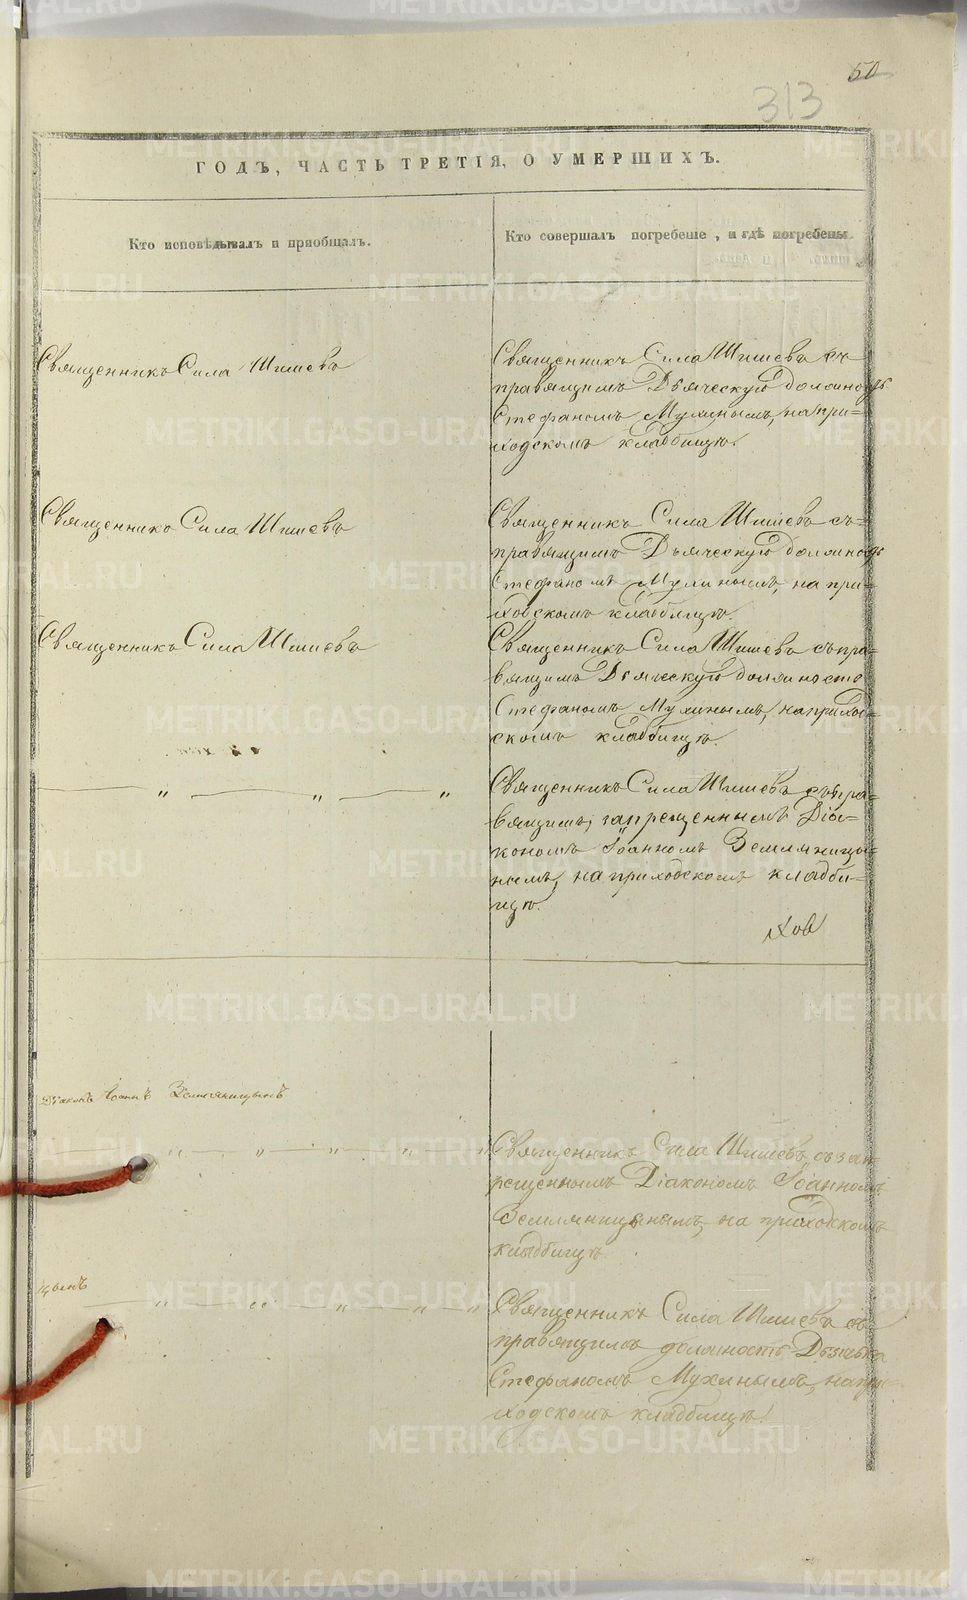 50
313
ГОДЪ, ЧАСТЬ ТРЕТІЯ, О УМЕРШИХЪ.
Кто исповѣдывалъ и пріобщалъ.
Кто совершалъ погребеніе, и гдѣ погребены.
Священникъ Сила Шишевъ
Священникъ Сила Шишевъ съ
правящимъ Дьяческую должность
Стефаномъ Мухинымъ, на при-
ходскомъ кладбищѣ.
Священникъ Сила Шишевъ
Священникъ Сила Шишевъ съ
правящимъ Дьяческую должность
Стефаномъ Мухинымъ, на при-
ходскомъ кладбищѣ.
Священникъ Сила Шишевъ
Священникъ Сила Шишевъ съ пра-
вящимъ Дьяческую должность
Стефаномъ Мухинымъ, на приход-
скомъ кладбищѣ.
Священникъ Сила Шишевъ съ пра-
вящимъ, запрещеннымъ Діа-
кономъ Іоанномъ Земляницы-
нымъ, на приходскомъ кладби-
щѣ.
хов
Діаконъ Іоаннъ Земляницынъ
Священникъ Сила Шишевъ, съ зап-
рещеннымъ Діакономъ Іоанномъ
Земляницынымъ, на приходскомъ
кладбищѣ.
цынъ
Священникъ Сила Шишевъ съ
правящимъ должность Дьячька
Стефаномъ Мухинымъ, на при-
ходскомъ кладбищѣ!
METRIKI.GASO-URAL.RU